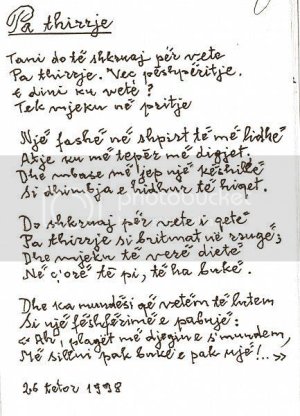 Pa thirrje
Tani do të shkruaj për vete
Pa thirrje. Veç pëshpëritje.
E dini ku vete?
Tek mjeku në pritje
Një fashë në shpirt të më lidhë
Atje ku më tepër më digjet.
Dhe mbase më jep një këshillë
Si dhimbja e hidhur të hiqet.
Do shkruaj për vete i qetë
Pa thirrje si britmat në rrugë;
Dhe mjeku të verë dietë
Në ç'orë të pi, të ha bukë.
Dhe ka mundësi që vetëm të hutem
Si një fëshfërimë e pabujë:
«Ah, plagët më djegin e s'mundem,
Më sillni pak bukë e pak ujë!..»
26 tetor 1998
photobucket